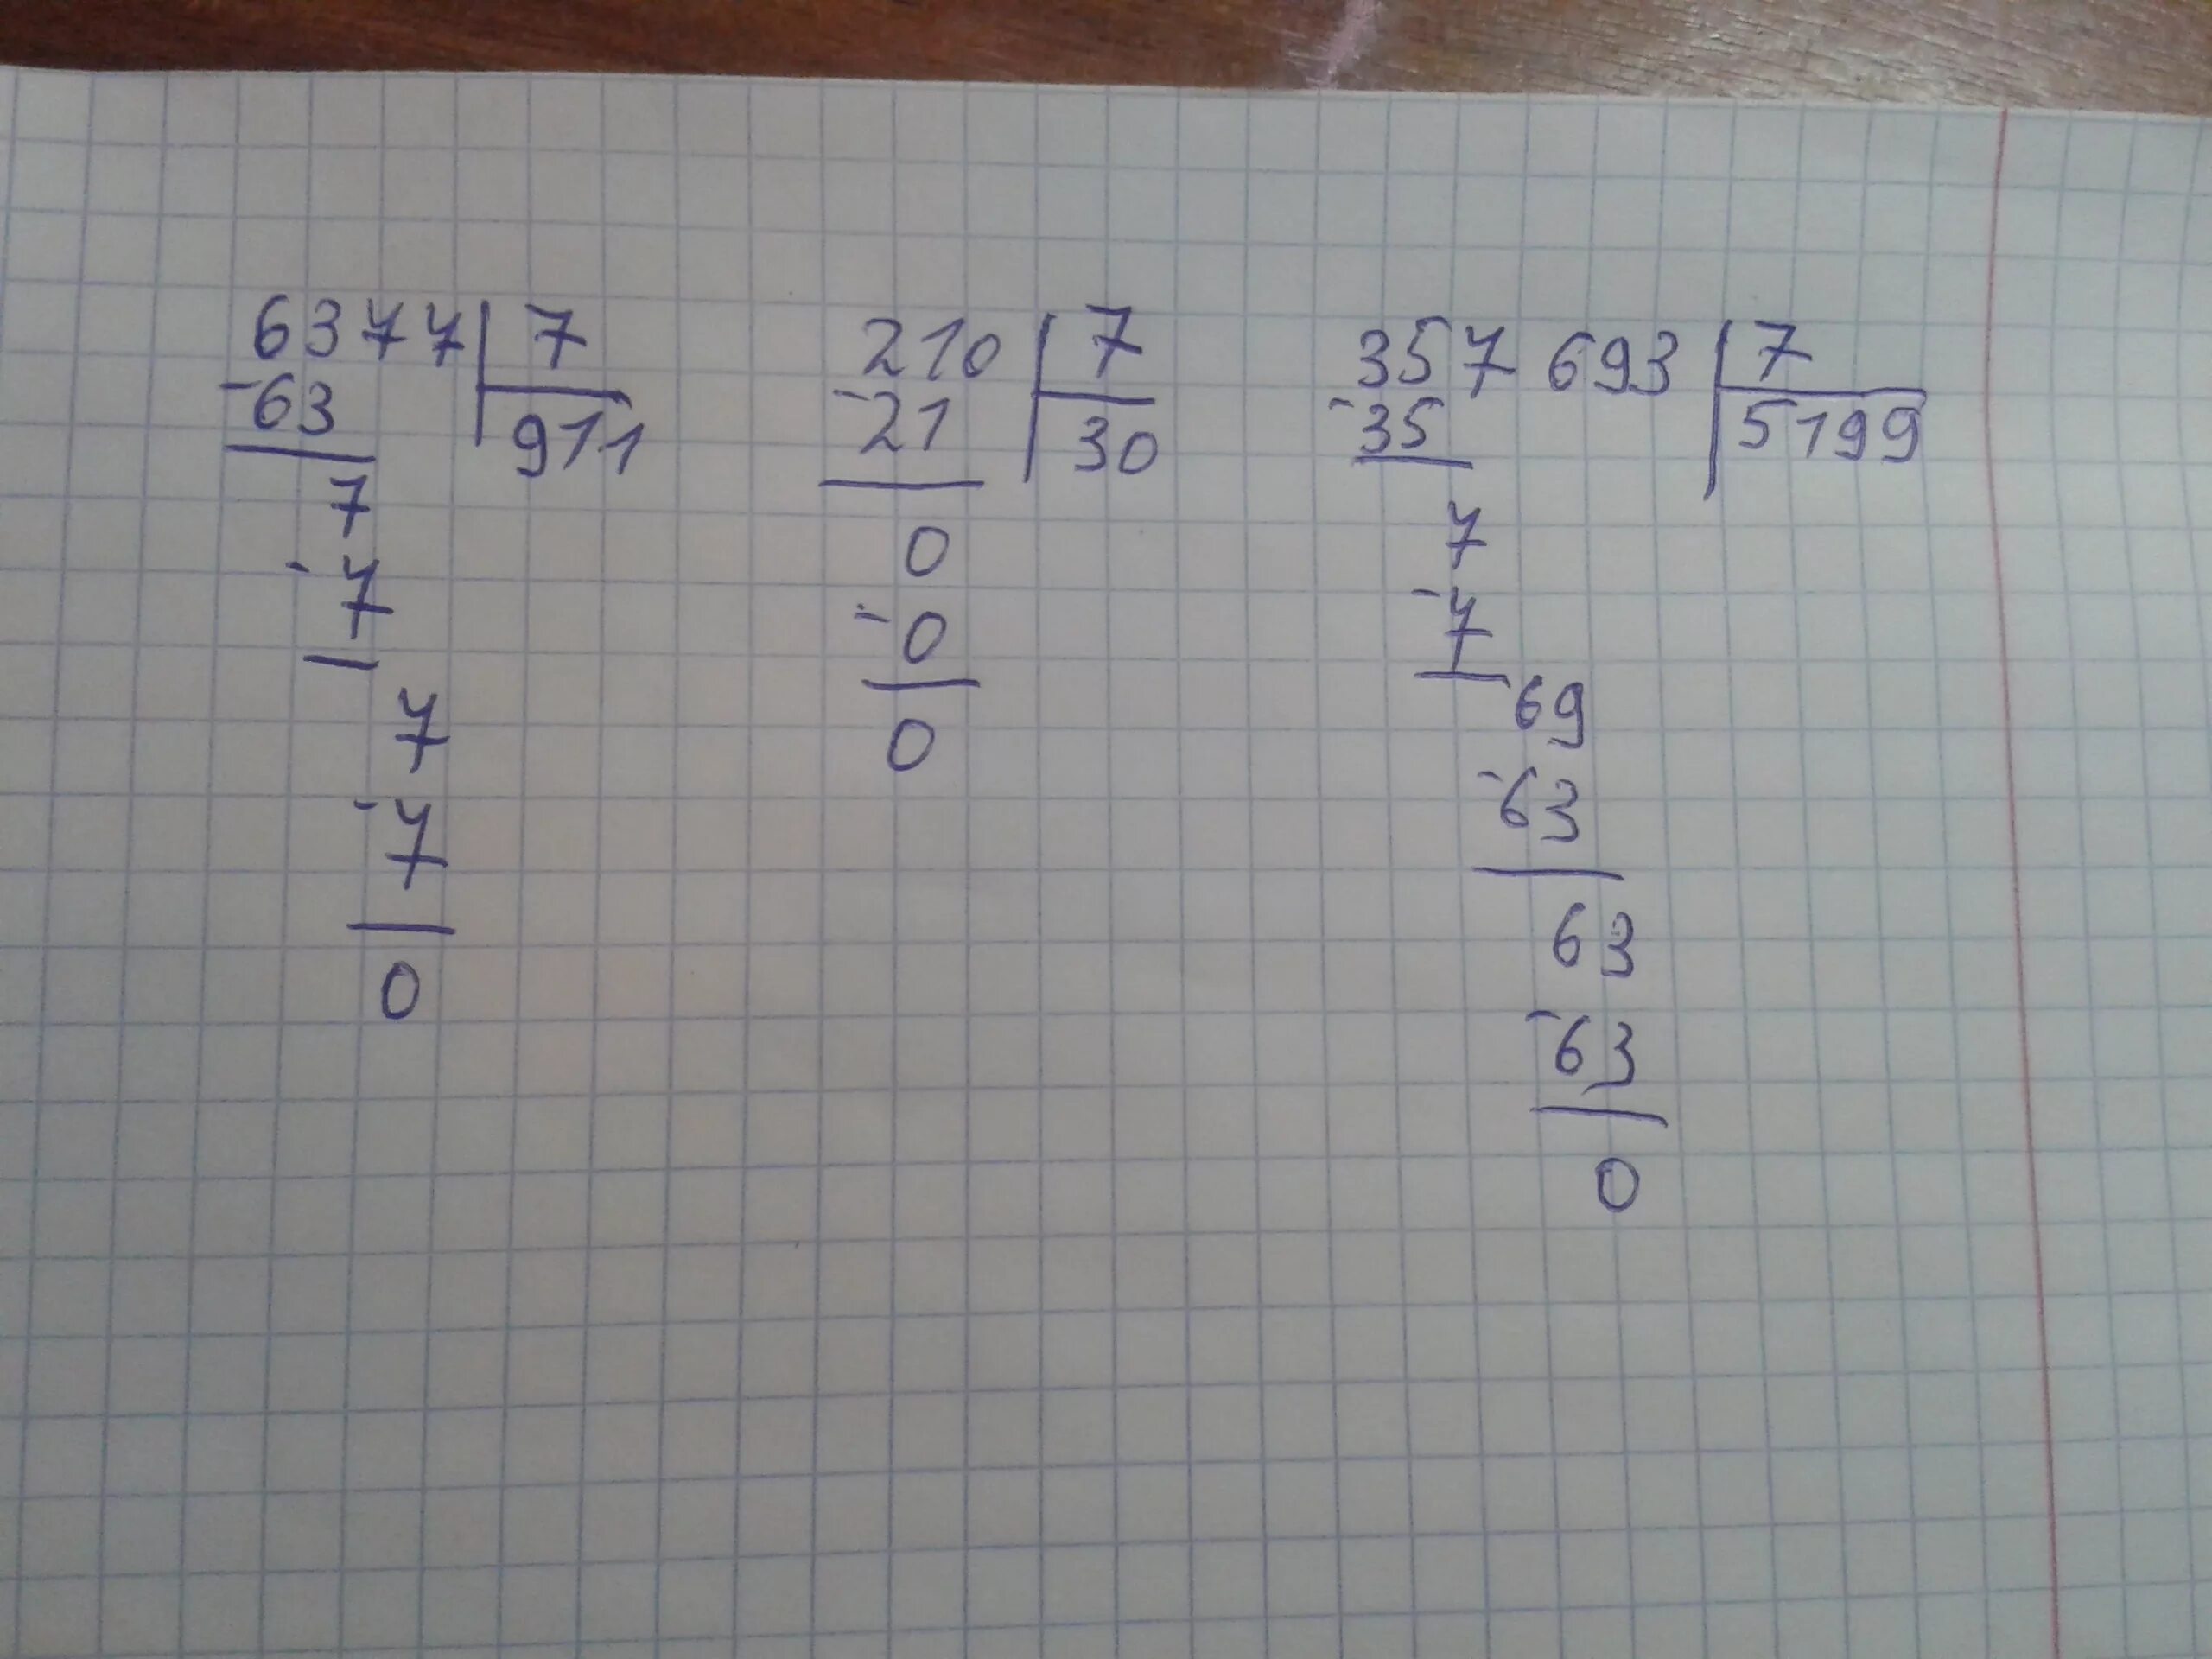 6377 7
-63 911
7
-7
7
-7
0
210 7
-21 30
0
-0
0
357 693 7
-35 5199
7
-7
69
-63
63
-63
0